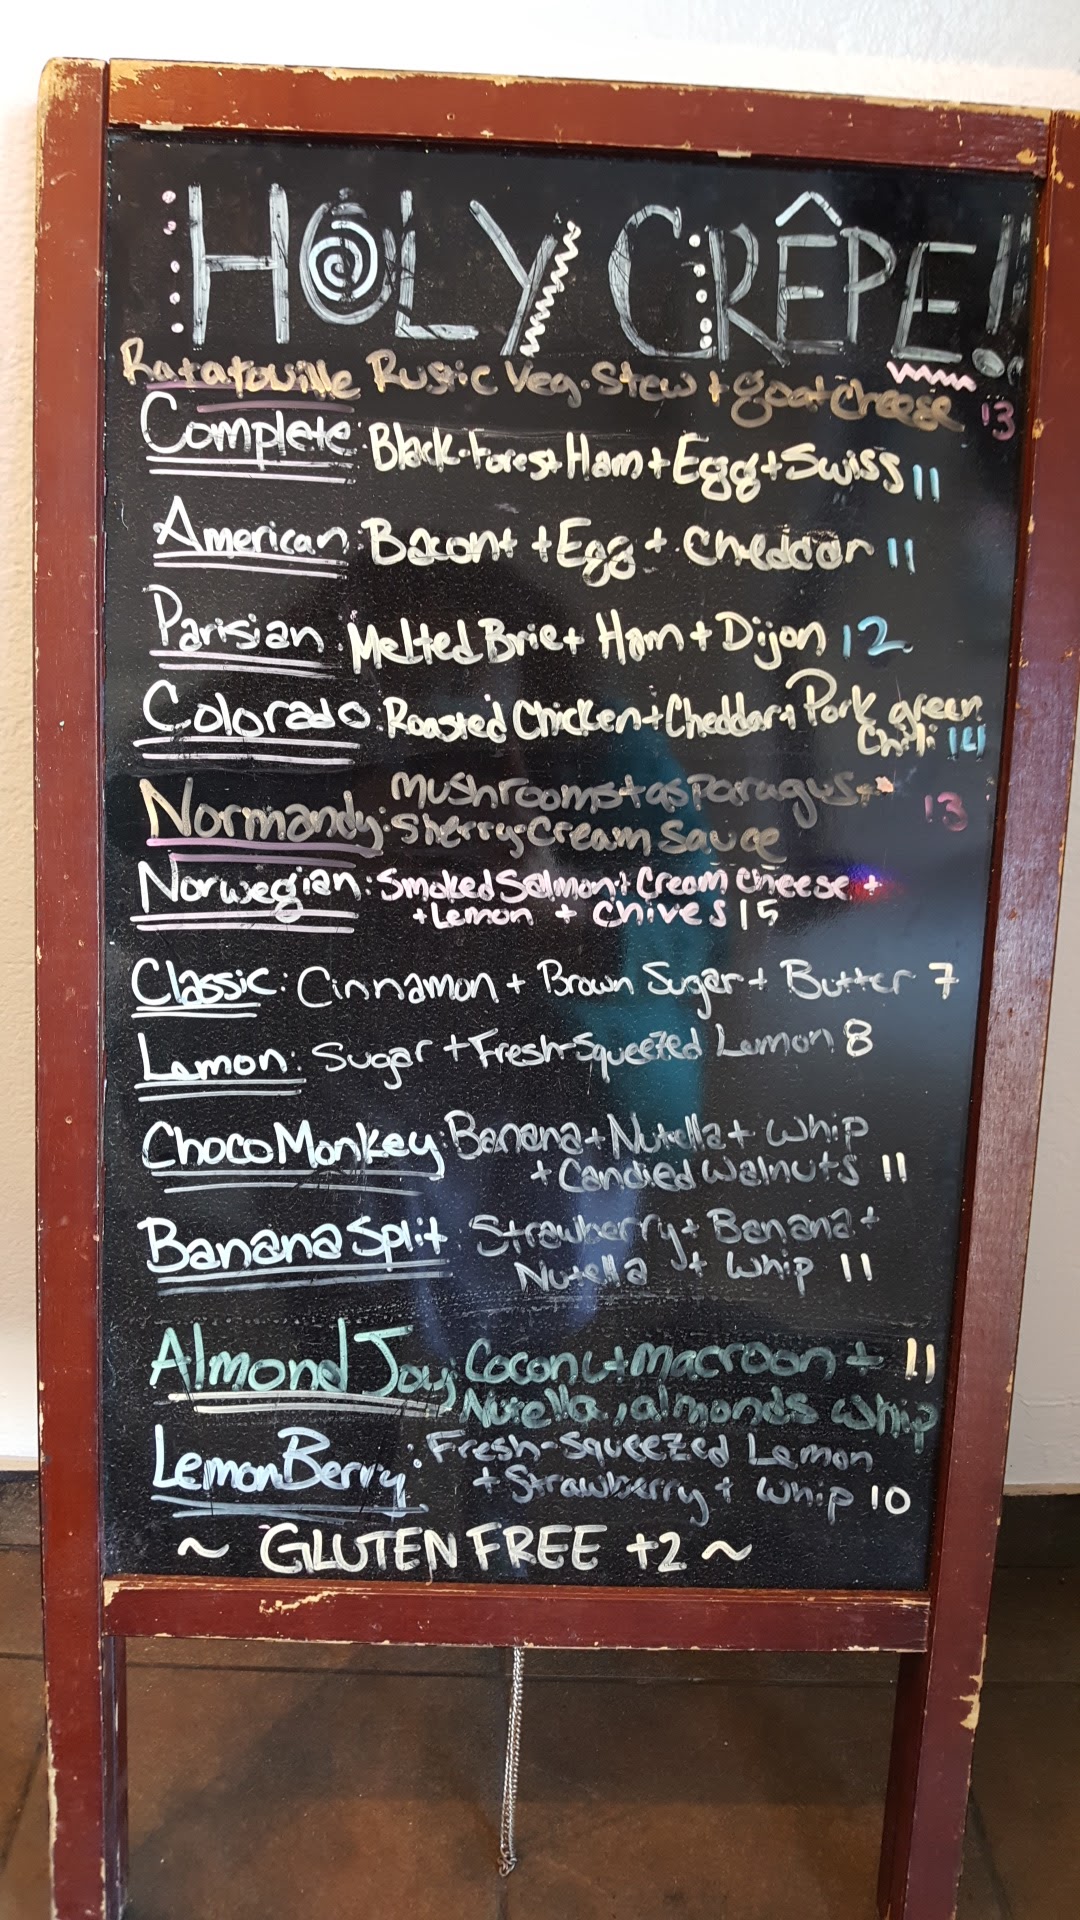 HOLY CRÊPE!!
Ratatouille Rustic Veg. Stew + goat cheese 13
Complete: Black-Forest Ham + Egg + Swiss 11
American: Bacon + + Egg + Cheddar 11
Parisian: Melted Brie + Ham + Dijon 12
Colorado: Roasted Chicken + Cheddar + Pork green
Chili 14
Normandy: Mushrooms + asparagus + 13
Sherry-Cream Sauce
Norwegian: Smoked Salmon + Cream Cheese +
+ Lemon + Chives 15
Classic: Cinnamon + Brown Sugar + Butter 7
Lemon: Sugar + Fresh-Squeezed Lemon 8
ChocoMonkey: Banana + Nutella + Whip
+ Candied Walnuts 11
Banana Split: Strawberry + Banana +
Nutella + Whip 11
Almond Joy: Coconut macroon + 11
Nutella, almonds whip
LemonBerry: Fresh-Squeezed Lemon
+ Strawberry + Whip 10
~ GLUTEN FREE +2 ~